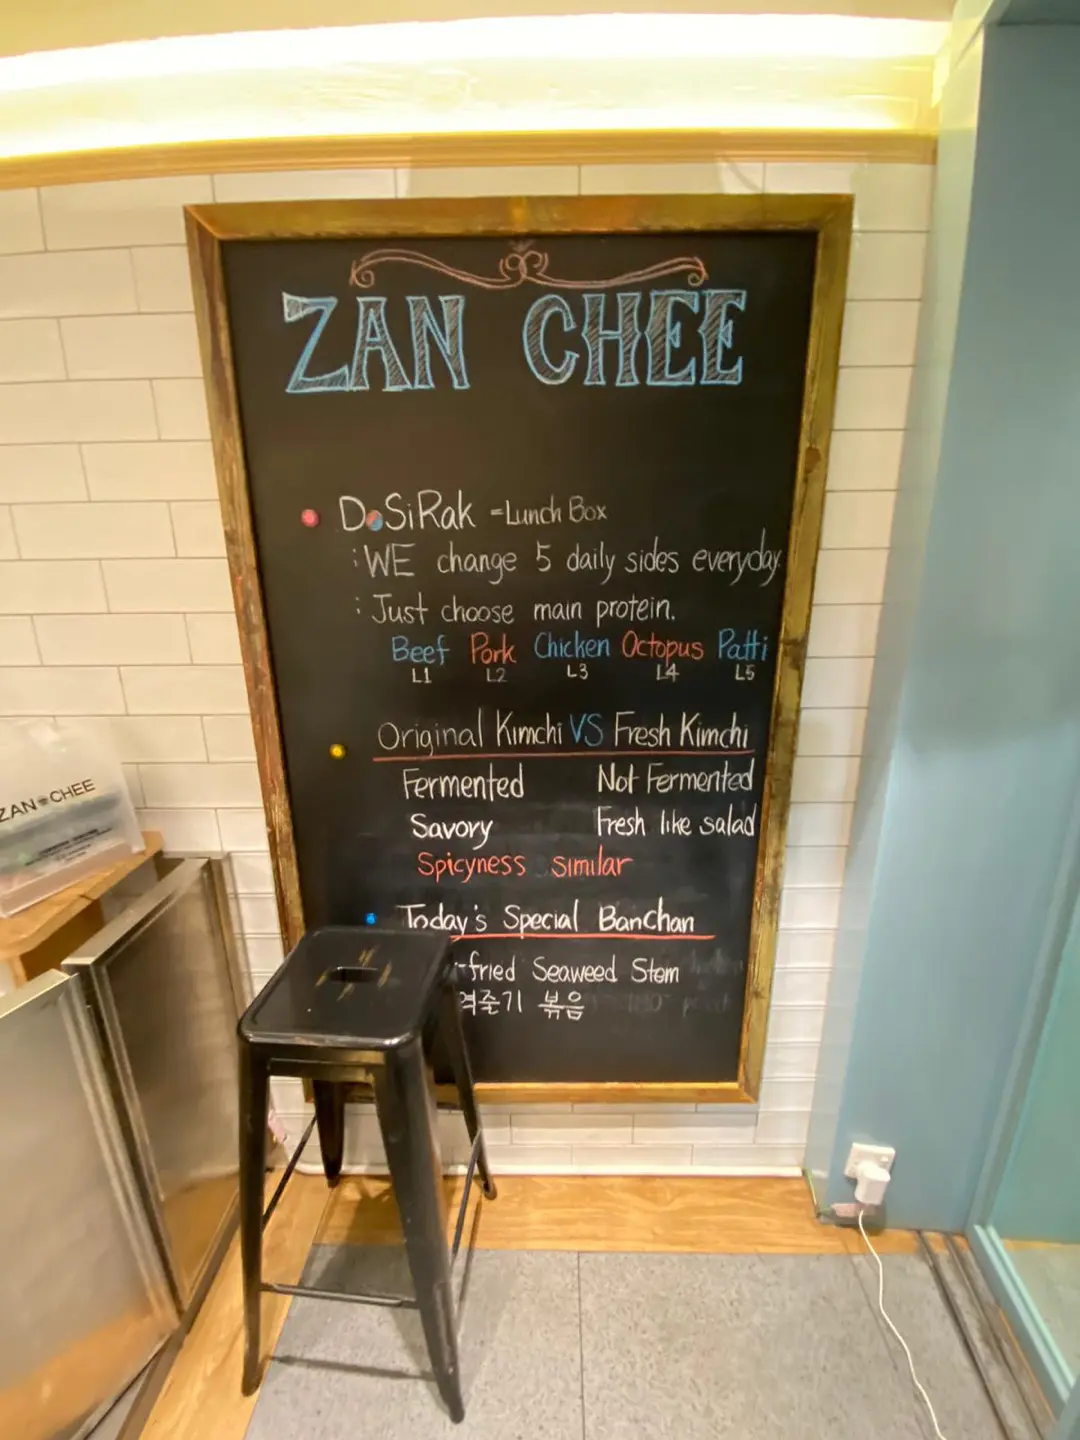 ZAN CHEE
DoSiRak =Lunch Box
:WE change 5 daily sides everyday.
: Just choose main protein.
Beef Pork Chicken Octopus Patti
L1 L2 L3 L4 L5
Original Kimchi VS Fresh Kimchi
Fermented Not Fermented
Savory Fresh like salad
Spicyness similar
Today's Special Banchan
-fried Seaweed Stem
역줄기 볶음
ZAN CHEE